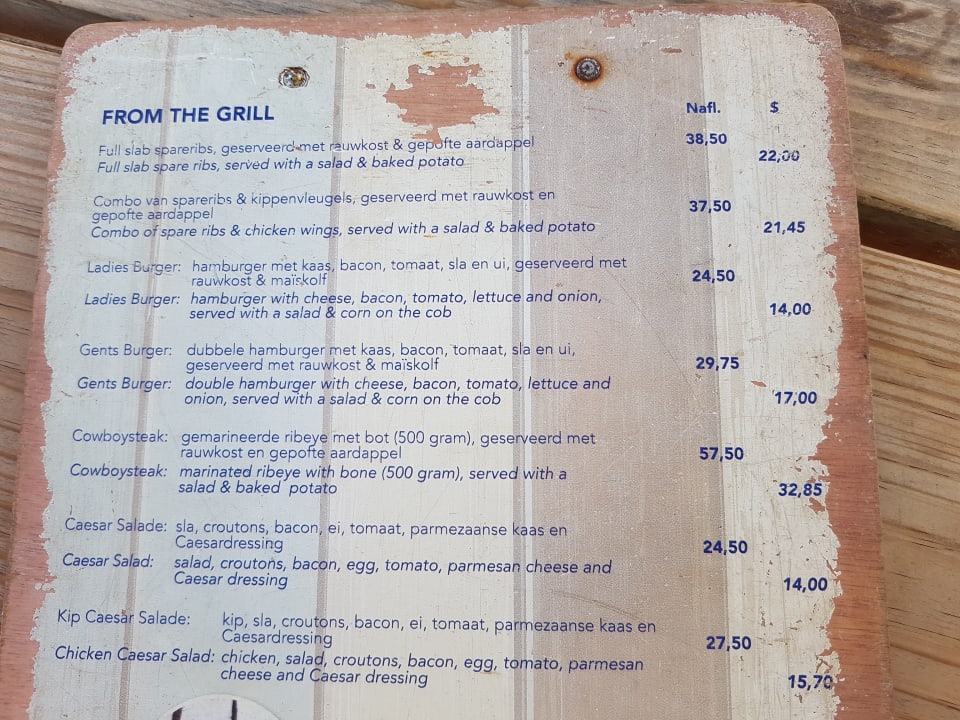 FROM THE GRILL Nafl. $
Full slab spareribs, geserveerd met rauwkost & gepofte aardappel 38,50
Full slab spare ribs, served with a salad & baked potato 22,00
Combo van spareribs & kippenvleugels, geserveerd met rauwkost en
gepofte aardappel 37,50
Combo of spare ribs & chicken wings, served with a salad & baked potato 21,45
Ladies Burger: hamburger met kaas, bacon, tomaat, sla en ui, geserveerd met
rauwkost & maïskolf 24,50
Ladies Burger: hamburger with cheese, bacon, tomato, lettuce and onion,
served with a salad & corn on the cob 14,00
Gents Burger: dubbele hamburger met kaas, bacon, tomaat, sla en ui,
geserveerd met rauwkost & maïskolf 29,75
Gents Burger: double hamburger with cheese, bacon, tomato, lettuce and
onion, served with a salad & corn on the cob 17,00
Cowboysteak: gemarineerde ribeye met bot (500 gram), geserveerd met
rauwkost en gepofte aardappel 57,50
Cowboysteak: marinated ribeye with bone (500 gram), served with a
salad & baked potato 32,85
Caesar Salade: sla, croutons, bacon, ei, tomaat, parmezaanse kaas en
Caesardressing 24,50
Caesar Salad: salad, croutons, bacon, egg, tomato, parmesan cheese and
Caesar dressing 14,00
Kip Caesar Salade: kip, sla, croutons, bacon, ei, tomaat, parmezaanse kaas en
Caesardressing 27,50
Chicken Caesar Salad: chicken, salad, croutons, bacon, egg, tomato, parmesan
cheese and Caesar dressing 15,70